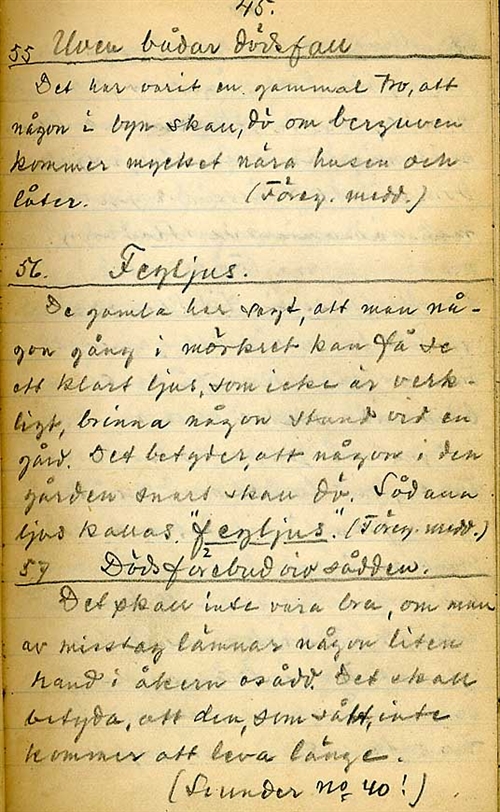 45.
55 Uven bådar dödsfall
Det har varit en gammal tro, att
någon i byn skall, dö om berguven
kommer mycket nära husen och
låter. (Föreg. medd.)
56. Fegljus.
De gamla har sagt, att man nå-
gon gång i mörkret kan få se
ett klart ljus, som icke är verk-
ligt, brinna någon stund vid en
gård. Det betyder, att någon i den
gården snart skall dö. Sådana
ljus kallas "fegljus". (Föreg. medd.)
57 Dödsförebud vid sådden.
Det skall inte vara bra, om man
av misstag lämnar någon liten
rand i åkern osådd. Det skall
betyda, att den, som sått, inte
kommer att leva länge.
(Se under No 40!)